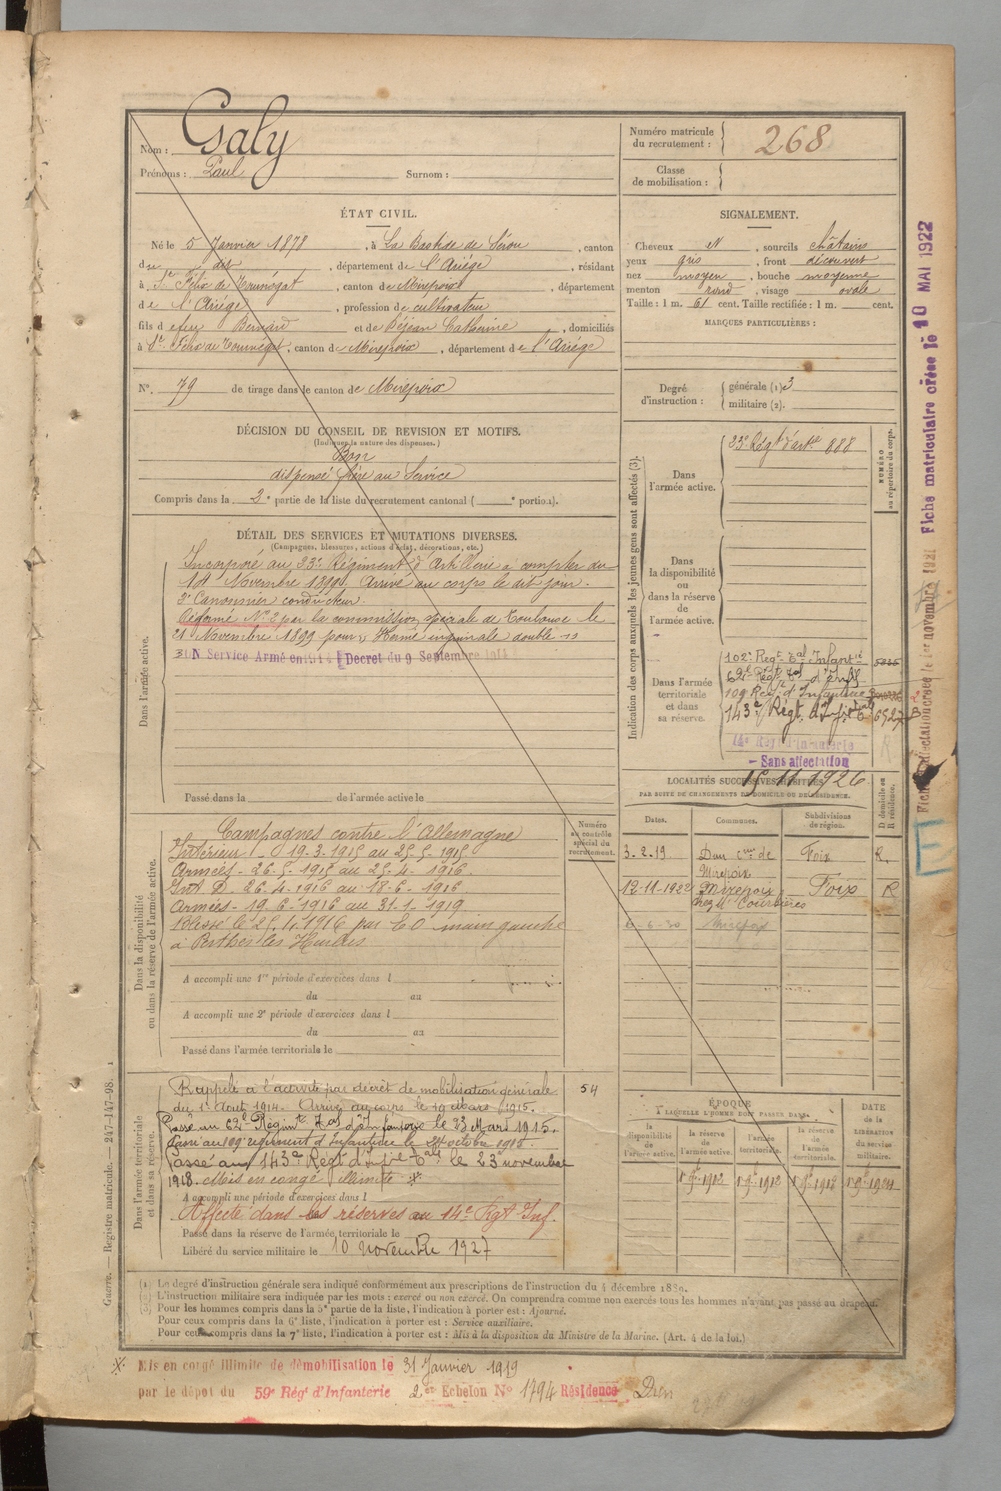 Nom : Galy
Prénoms : Paul Surnom :
Numéro matricule du recrutement : 268
Classe de mobilisation :
ÉTAT CIVIL.
Né le 5 Janvier 1878, à La Bastide de Sérou, canton
de dit, département de l'Ariége, résidant
à St Félix de Tournégat, canton de Mirepoix, département
de l'Ariége, profession de cultivateur
fils de feu Bernard et de Péjean Catherine, domiciliés
à St Félix de Tournégat, canton de Mirepoix, département de l'Ariége
N° 79 de tirage dans le canton de Mirepoix
SIGNALEMENT.
Cheveux N, sourcils châtains
yeux gris, front découvert
nez moyen, bouche moyenne
menton rond, visage ovale
Taille : 1 m. 61 cent. Taille rectifiée : 1 m. cent.
MARQUES PARTICULIÈRES :
Degré d'instruction : générale (1) 3
militaire (2).
DÉCISION DU CONSEIL DE REVISION ET MOTIFS.
(Indiquer la nature des dispenses.)
Bon
dispensé frère au Service
Compris dans la 2e partie de la liste du recrutement cantonal ( e portion).
DÉTAIL DES SERVICES ET MUTATIONS DIVERSES.
(Campagnes, blessures, actions d'éclat, décorations, etc.)
Dans l'armée active.
Incorporé au 23e Régiment d'Artillerie à compter du
14 Novembre 1899. Arrivé au corps le dit jour.
2e Canonnier conducteur
Réformé N° 2 par la commission spéciale de Toulouse le
21 Novembre 1899 pour Hernie inguinale double
Service Armé Decret du 9 Septembre 1914
Passé dans la de l'armée active le
Indication des corps auxquels les jeunes gens sont affectés (3).
NUMÉRO au répertoire du corps.
Dans l'armée active. 23e Régt d'artie 888
Dans la disponibilité ou dans la réserve de l'armée active.
Dans l'armée territoriale et dans sa réserve.
102e Régt Tal Infantie
62e Régt Tal d'Infie
109 Régt d'Infanterie
143e Régt d'Infie Tale 6527
14e Régt d'Infanterie
— Sans affectation
15.11.1926
LOCALITÉS SUCCESSIVES HABITÉES
PAR SUITE DE CHANGEMENTS DE DOMICILE OU DE RÉSIDENCE.
Dates. Communes. Subdivisions de région. D domicile ou R résidence.
3.2.19 Dun con de Mirepoix Foix R.
12-11-1922 Mirepoix chez Mr Courbières Foix R
6-6-30 Mirepoix
Dans la disponibilité ou dans la réserve de l'armée active.
Numéro au contrôle spécial du recrutement.
Campagnes contre l'Allemagne
Intérieur 19-3-1915 au 25-5-1915
Armées - 26-5-1915 au 25-4-1916
Int D. 26-4-1916 au 18-6-1916
Armées - 19-6-1916 au 31-1-1919
Blessé le 25.4.1916 par E.O main gauche
à
A accompli une 1re période d'exercices dans l
du au
A accompli une 2e période d'exercices dans l
du au
Passé dans l'armée territoriale le
Dans l'armée territoriale et dans sa réserve.
Rappelé à l'activité par décret de mobilisation générale 54
du 1er Août 1914. Arrivé au corps le 19 Mars 1915.
Passé au 62e Régiment Tal d'Infanterie le 23 Mars 1915.
Passé au 109e régiment d'Infanterie le octobre 1915.
Passé au 143e Régt d'Infie Tale le 23 novembre
1918. Mis en congé illimité *
A accompli une période d'exercices dans l
Affecté dans les réserves au 14e Rgt Inf.
Passé dans la réserve de l'armée territoriale le
Libéré du service militaire le 10 novembre 1927
ÉPOQUE
À LAQUELLE L'HOMME DOIT PASSER DANS
la disponibilité de l'armée active. la réserve de l'armée active. l'armée territoriale. la réserve de l'armée territoriale.
DATE de la LIBÉRATION du service militaire.
(1) Le degré d'instruction générale sera indiqué conformément aux prescriptions de l'instruction du 4 décembre 1889.
(2) L'instruction militaire sera indiquée par les mots : exercé ou non exercé. On comprendra comme non exercés tous les hommes n'ayant pas passé au drapeau.
(3) Pour les hommes compris dans la 5e partie de la liste, l'indication à porter est : Ajourné.
Pour ceux compris dans la 6e liste, l'indication à porter est : Service auxiliaire.
Pour ceux compris dans la 7e liste, l'indication à porter est : Mis à la disposition du Ministre de la Marine. (Art. 4 de la loi.)
* Mis en congé illimité de démobilisation le 31 Janvier 1919
par le dépôt du 59e Régt d'Infanterie 2e Echelon N° 1794 Résidence Dun
Guerre. — Registre matricule. — 247-147-98.
Fiche matriculaire créée le 10 MAI 1922